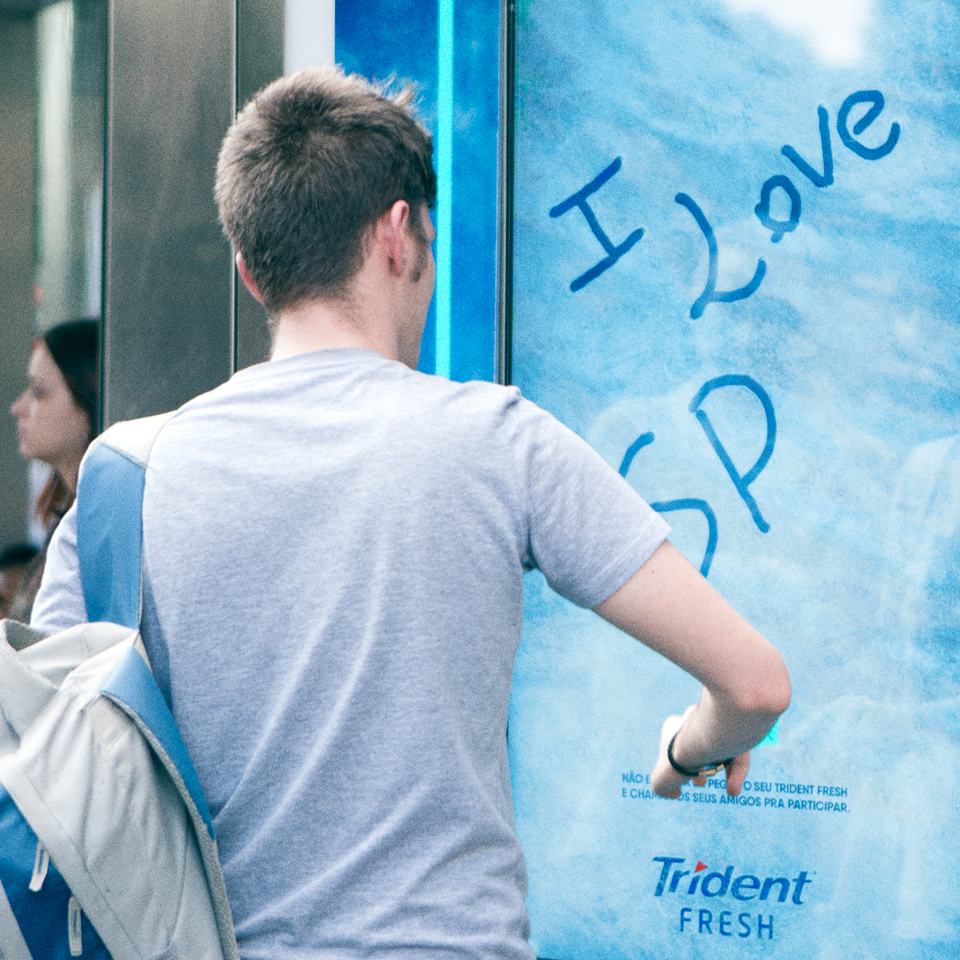 I Love
SP
NÃO E O SEU TRIDENT FRESH
E CHA OS SEUS AMIGOS PRA PARTICIPAR.
Trident
FRESH